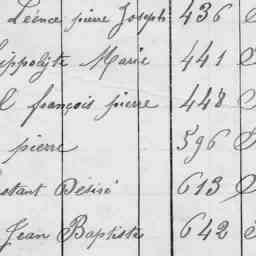 Léonce pierre Joseph 436
hippolyte Marie 441
françois pierre 448
pierre 596
Constant Désiré 613
Jean Baptiste 642